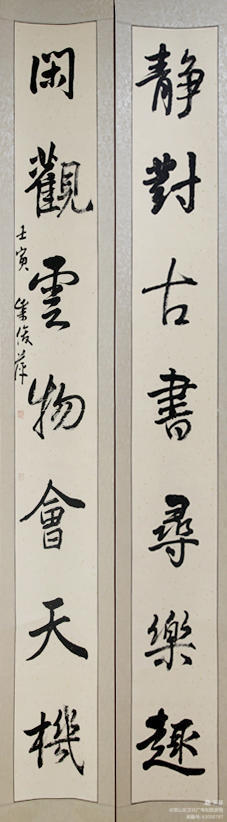 静對古書尋樂趣
閑觀雲物會天機
壬寅